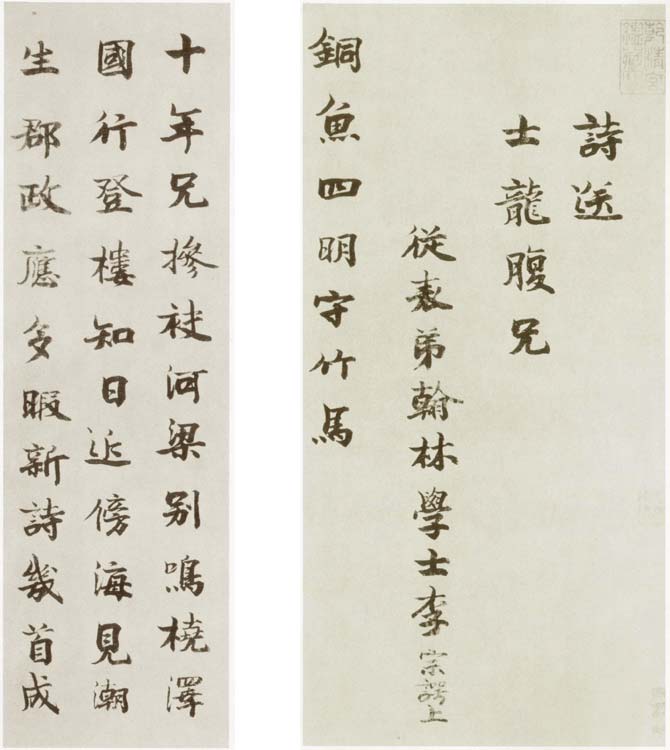 詩送
士龍腹兄
従表弟翰林學士李宗諤上
銅魚四明守竹馬
十年兄摻袂河梁别鳴橈澤
國行登樓知日近傍海見潮
生郡政應多暇新詩幾首成